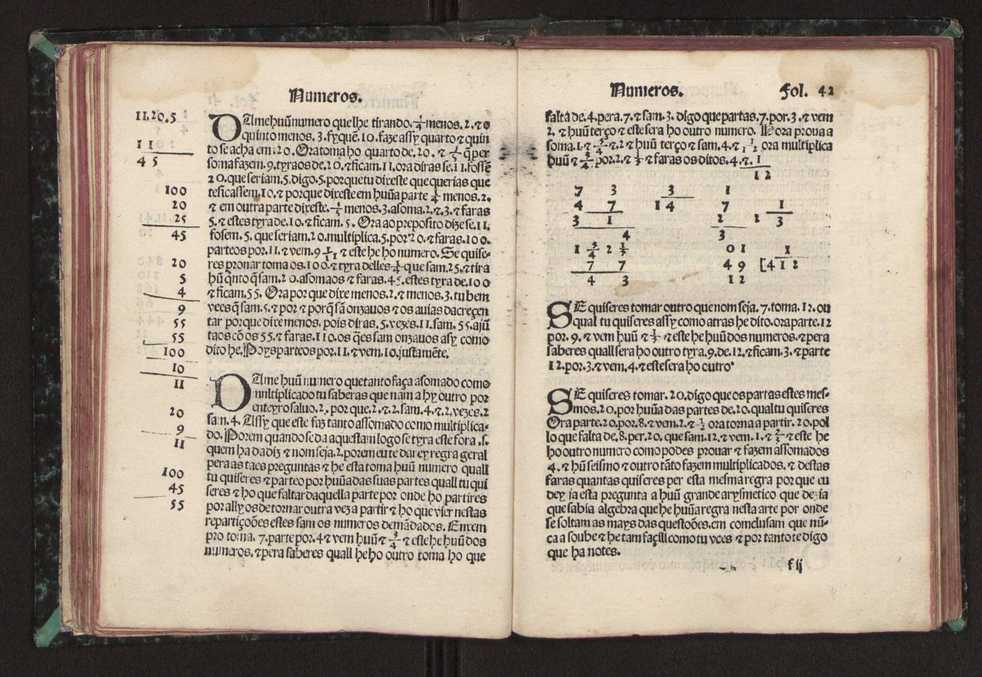 Numeros.
11.20.5
11
45
100
20
25
45
20
5
4
9
55
55
100
10
11
20
9
11
100
45
55
DAlme huũ numero que lhe tirando. 1/4 menos. 2. ⁊ o
quinto menos. 3. fyquẽ. 10. faze assy quarto ⁊ quin
to se acha em. 20. Ora toma ho quarto de. 20. ⁊ 1/5 q̃ per
soma fazem. 9. tyraos de. 20. ⁊ ficam. 11. ora diras se. 11. fossẽ
20. que seriam. 5. digo. 5. porque tu dixeste que querias que
te ficassem. 10. ⁊ porque dixeste em huũa parte 1/4 menos. 2.
⁊ em outra parte dixeste. 1/5 menos. 3. asoma. 2. ⁊. 3. ⁊ faras
5. ⁊ estes tyra de. 10. ⁊ ficam. 5. Ora ao preposito dize se. 11.
fosem. 5. que seriam. 20. multiplica. 5. por 20. ⁊ faras. 100.
parte os por. 11. ⁊ vem. 9 1/11 ⁊ este he ho numero. Se quise-
res prouar toma os. 100 ⁊ tyra delles 1/4 que sam. 25. ⁊ tira
hũ q̃nto q̃ sam. 20. asoma os ⁊ faras. 45. estes tyra de. 100
⁊ ficam. 55. Ora por que dixe menos. 2. ⁊ menos. 3. tu bem
vees q̃ sam. 5. ⁊ por ⁊ porq̃ sã onzauos ⁊ os auias dacreçen
tar por que dixe menos. pois diras. 5. vezes. 11. sam. 55. ajũ
ta os cõ os 55. ⁊ faras. 110. os q̃es sam onzauos asy como
dito he. Poys parte os por. 11. ⁊ vem. 10. justamẽte.
DAlme huũ numero que tanto faça asomado como
multiplicado tu saberas que nam a hy outro por
enteyro saluo. 2. por que. 2. ⁊. 2. sam. 4. ⁊. 2. vezes. 2
sam. 4. Assy que este faz tanto assomado como multiplica-
do. Porem quando se da aquestam logo se tyra este fora. s.
quem ha da diz ⁊ nom seja. 2. porem eu te darey regra geral
pera as taes preguntas ⁊ he esta toma huũ numero quall
tu quiseres ⁊ parte o por huũa das suas partes quall tu qui
seres ⁊ ho que faltar daquella parte por onde ho partires
por ally os de tornar outra vez a partir ⁊ ho que vier nestas
repartiçoões estes sam os numeros demãdados. Enxem
pro toma. 7. parte por. 4 ⁊ vem huũ ⁊ 3/4 ⁊ este he huũ dos
numeros. ⁊ pera saberes quall he ho outro toma ho que
Numeros. Fol. 42
falta de. 4. pera. 7. ⁊ sam. 3. digo que partas. 7. por. 3. ⁊ vem
2. ⁊ huũ terço ⁊ este sera ho outro numero. Pora proua a
soma. 1. ⁊ 3/4 ⁊. 2 ⁊ huũ terço ⁊ sam. 4. ⁊ 1/12 ora multiplica
huũ ⁊ 3/4 por. 2. ⁊ 1/3 ⁊ faras os ditos. 4. ⁊. 1
12
7 3 3 1
4 7 1 4 7 1
3 1 2 2 3
4 3
1 3/4 2 1/3 0 1 1
7 7 4 9 [4 1 2
4 3 1 2
SE quiseres tomar outro que nom seja. 7. toma. 12. ou
qual tu quiseres assy como atras he dito. ora parte. 12
por. 9. ⁊ vem huũ ⁊ 1/3 ⁊ este he huũ dos numeros. ⁊ pera
saberes quall sera ho outro tyra. 9. de. 12. ⁊ ficam. 3. ⁊ parte
12. por. 3. ⁊ vem. 4. ⁊ este sera ho outro
SE quiseres tomar. 20. digo que os partas estes mes-
mos. 20. por huũa das partes de. 20. qual tu quiseres
Ora parte. 20. por. 8. ⁊ vem. 2. ⁊ 1/2 ora torna a partir. 20. pol
lo que falta de. 8. per. 20. que sam. 12. ⁊ vem. 1. ⁊ 2/3 ⁊ este he
ho outro numero como podes prouar ⁊ fazem assomados
4. ⁊ huũ seismo ⁊ outro tãto fazem multiplicados. ⁊ destas
faras quantas quiseres per esta mesma regra por que eu
dey ja esta pregunta a huũ grande arysmetico que dezia
que sabia algebra que he huũa regra nesta arte por onde
se soltam as mays das questoões. em comclusam que nũ-
ca a soube ⁊ he tam façill como tu vees ⁊ por tanto te digo
que ha notes.
f ij